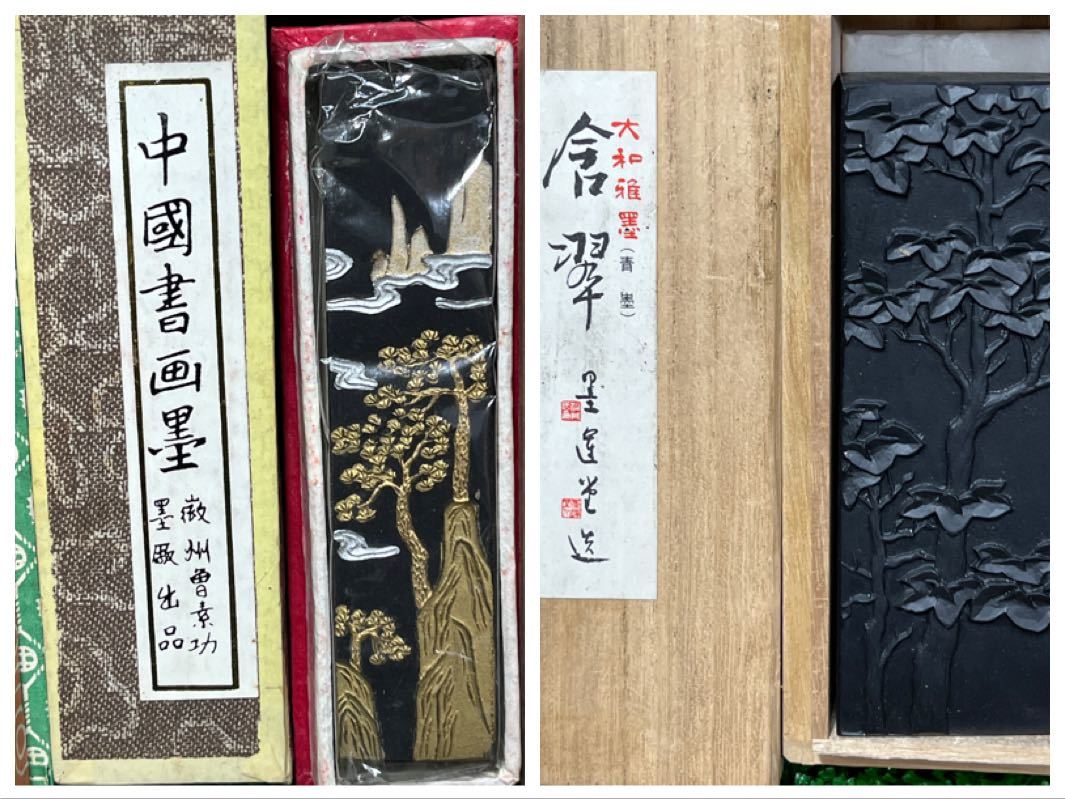 中國書画墨
徽州曹素功
墨厰出品
大和雅墨（青墨）
含翠
墨運堂造